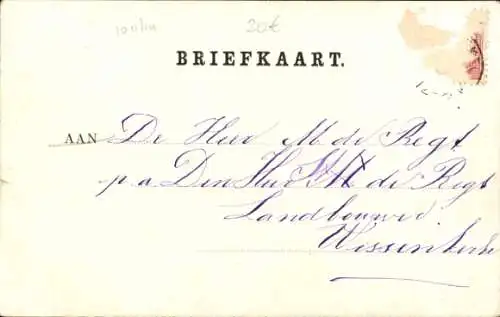 20€
BRIEFKAART.
AAN De Heer M de Regt
p.a Den Heer M de Regt
Landbouwer
Wissenkerke